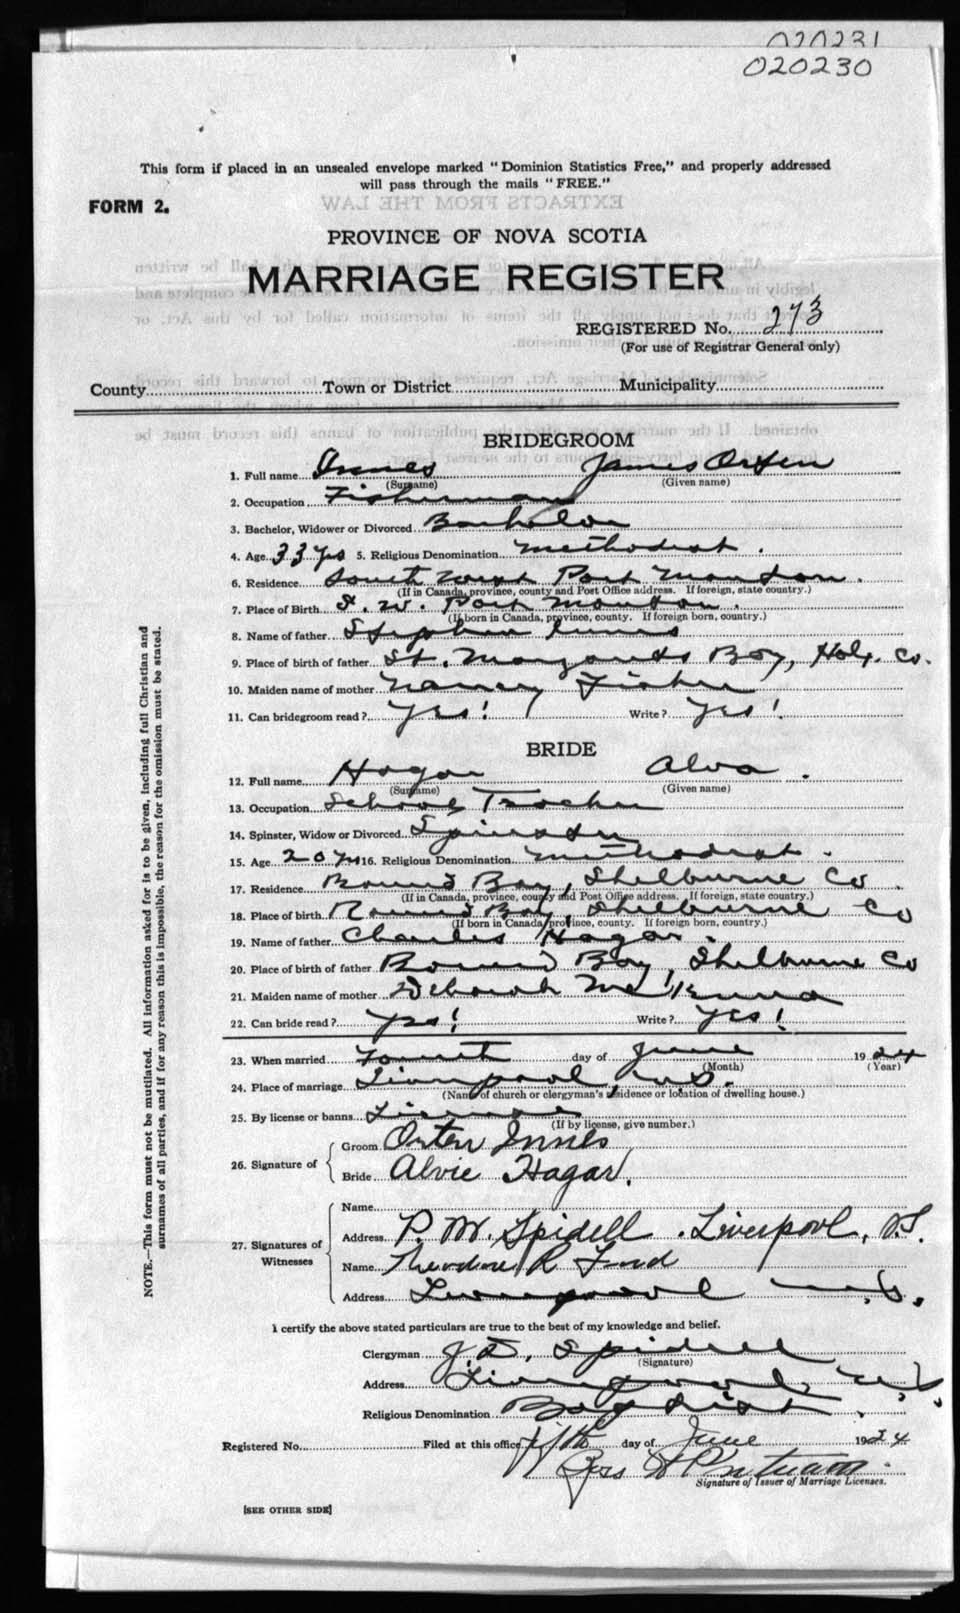 020231
020230
This form if placed in an unsealed envelope marked "Dominion Statistics Free," and properly addressed
will pass through the mails "FREE."
FORM 2.
PROVINCE OF NOVA SCOTIA
MARRIAGE REGISTER
REGISTERED No. 273
(For use of Registrar General only)
County Town or District Municipality
BRIDEGROOM
1. Full name Innes James Orten
(Surname) (Given name)
2. Occupation Fisherman
3. Bachelor, Widower or Divorced Bachelor
4. Age 33 yrs 5. Religious Denomination Methodist.
6. Residence South West Port Mouton.
(If in Canada, province, county and Post Office address. If foreign, state country.)
7. Place of Birth S. W. Port Mouton.
(If born in Canada, province, county. If foreign born, country.)
8. Name of father Stephen Innes
9. Place of birth of father St. Margarets Bay, Halx. Co.
10. Maiden name of mother Nancy Fisher
11. Can bridegroom read? Yes! Write? Yes!
BRIDE
12. Full name Hagar Alva.
(Surname) (Given name)
13. Occupation School Teacher
14. Spinster, Widow or Divorced Spinster
15. Age 20 yrs 16. Religious Denomination Methodist.
17. Residence Round Bay, Shelburne Co.
(If in Canada, province, county and Post Office address. If foreign, state country.)
18. Place of birth Round Bay, Shelburne Co
(If born in Canada, province, county. If foreign born, country.)
19. Name of father Charles Hagar.
20. Place of birth of father Round Bay, Shelburne Co
21. Maiden name of mother Deborah
22. Can bride read? Yes! Write? Yes!
23. When married Fourth day of June 1924
(Month) (Year)
24. Place of marriage Liverpool, N.S.
(Name of church or clergyman's residence or location of dwelling house.)
25. By license or banns License
(If by license, give number.)
26. Signature of Groom Orten Innes
Bride Alvie Hagar.
27. Signatures of Witnesses
Name
Address P. M. Spidell. Liverpool, N.S.
Name Theodore R Ford
Address Liverpool N.S.
I certify the above stated particulars are true to the best of my knowledge and belief.
Clergyman J. D. Spidell
(Signature)
Address Liverpool N.S.
Religious Denomination Baptist.
Registered No. Filed at this office fifth day of June 1924
Geo W Putnam
Signature of Issuer of Marriage Licenses.
[SEE OTHER SIDE]
NOTE.—This form must not be mutilated. All information asked for is to be given, including full Christian and
surnames of all parties, and if for any reason this is impossible, the reason for the omission must be stated.